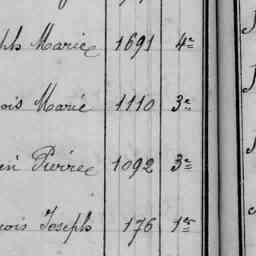 Marie 1691 4e
ois Marie 1110 3e
Pierre 1092 3e
çois Joseph 176 1er